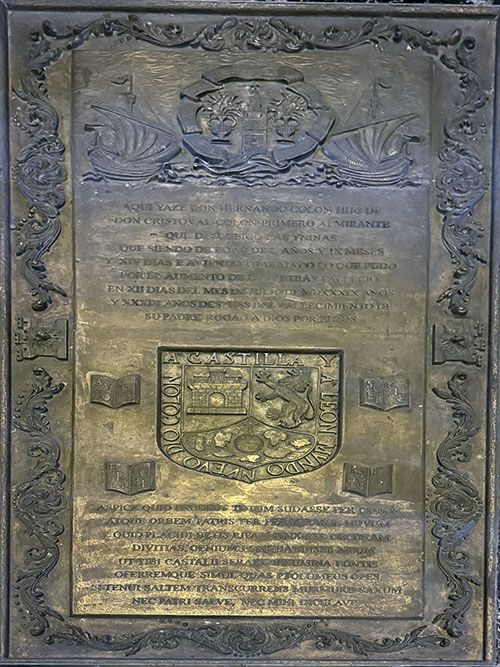 AQUI YAZE DON HERNANDO COLON HIJO DE
DON CRISTOVAL COLON PRIMERO ALMIRANTE
QUE DESCUBRIO LAS YNDIAS
QUE SIENDO DE EDAD DE AÑOS Y IX MESES
Y XIV DIAS E AVIENDO TRABAJADO LO QUE PUDO
POR EL AUMENTO DE LAS LETRAS FALLECIO
EN XII DIAS DEL MES DE JULIO DE MDXXXIX AÑOS
Y XXXIII AÑOS DESPUES DEL FALLECIMIENTO DE
SU PADRE ROGAD A DIOS POR ELLOS
A CASTILLA Y A LEON MUNDO NUEVO DIO COLON
ASPICE QUID PRODEST TOTUM SUDASSE PER ORBEM
ATQUE ORBEM PATRIS TER PERAGRASSE NOVUM
QUID PLACIDI BETIS RIPAM DECORAM
DIVITIAS GENIUM POST HABUISSE MEUM
UT TIBI CASTALII RESERAREM NUMINA FONTIS
OFERREMQUE SIMUL QUAS PTOLOMEUS OPES
SALTEM TRANSCURRENS MURMURE SAXUM
NEC PATRI SALVE, NEC MIHI